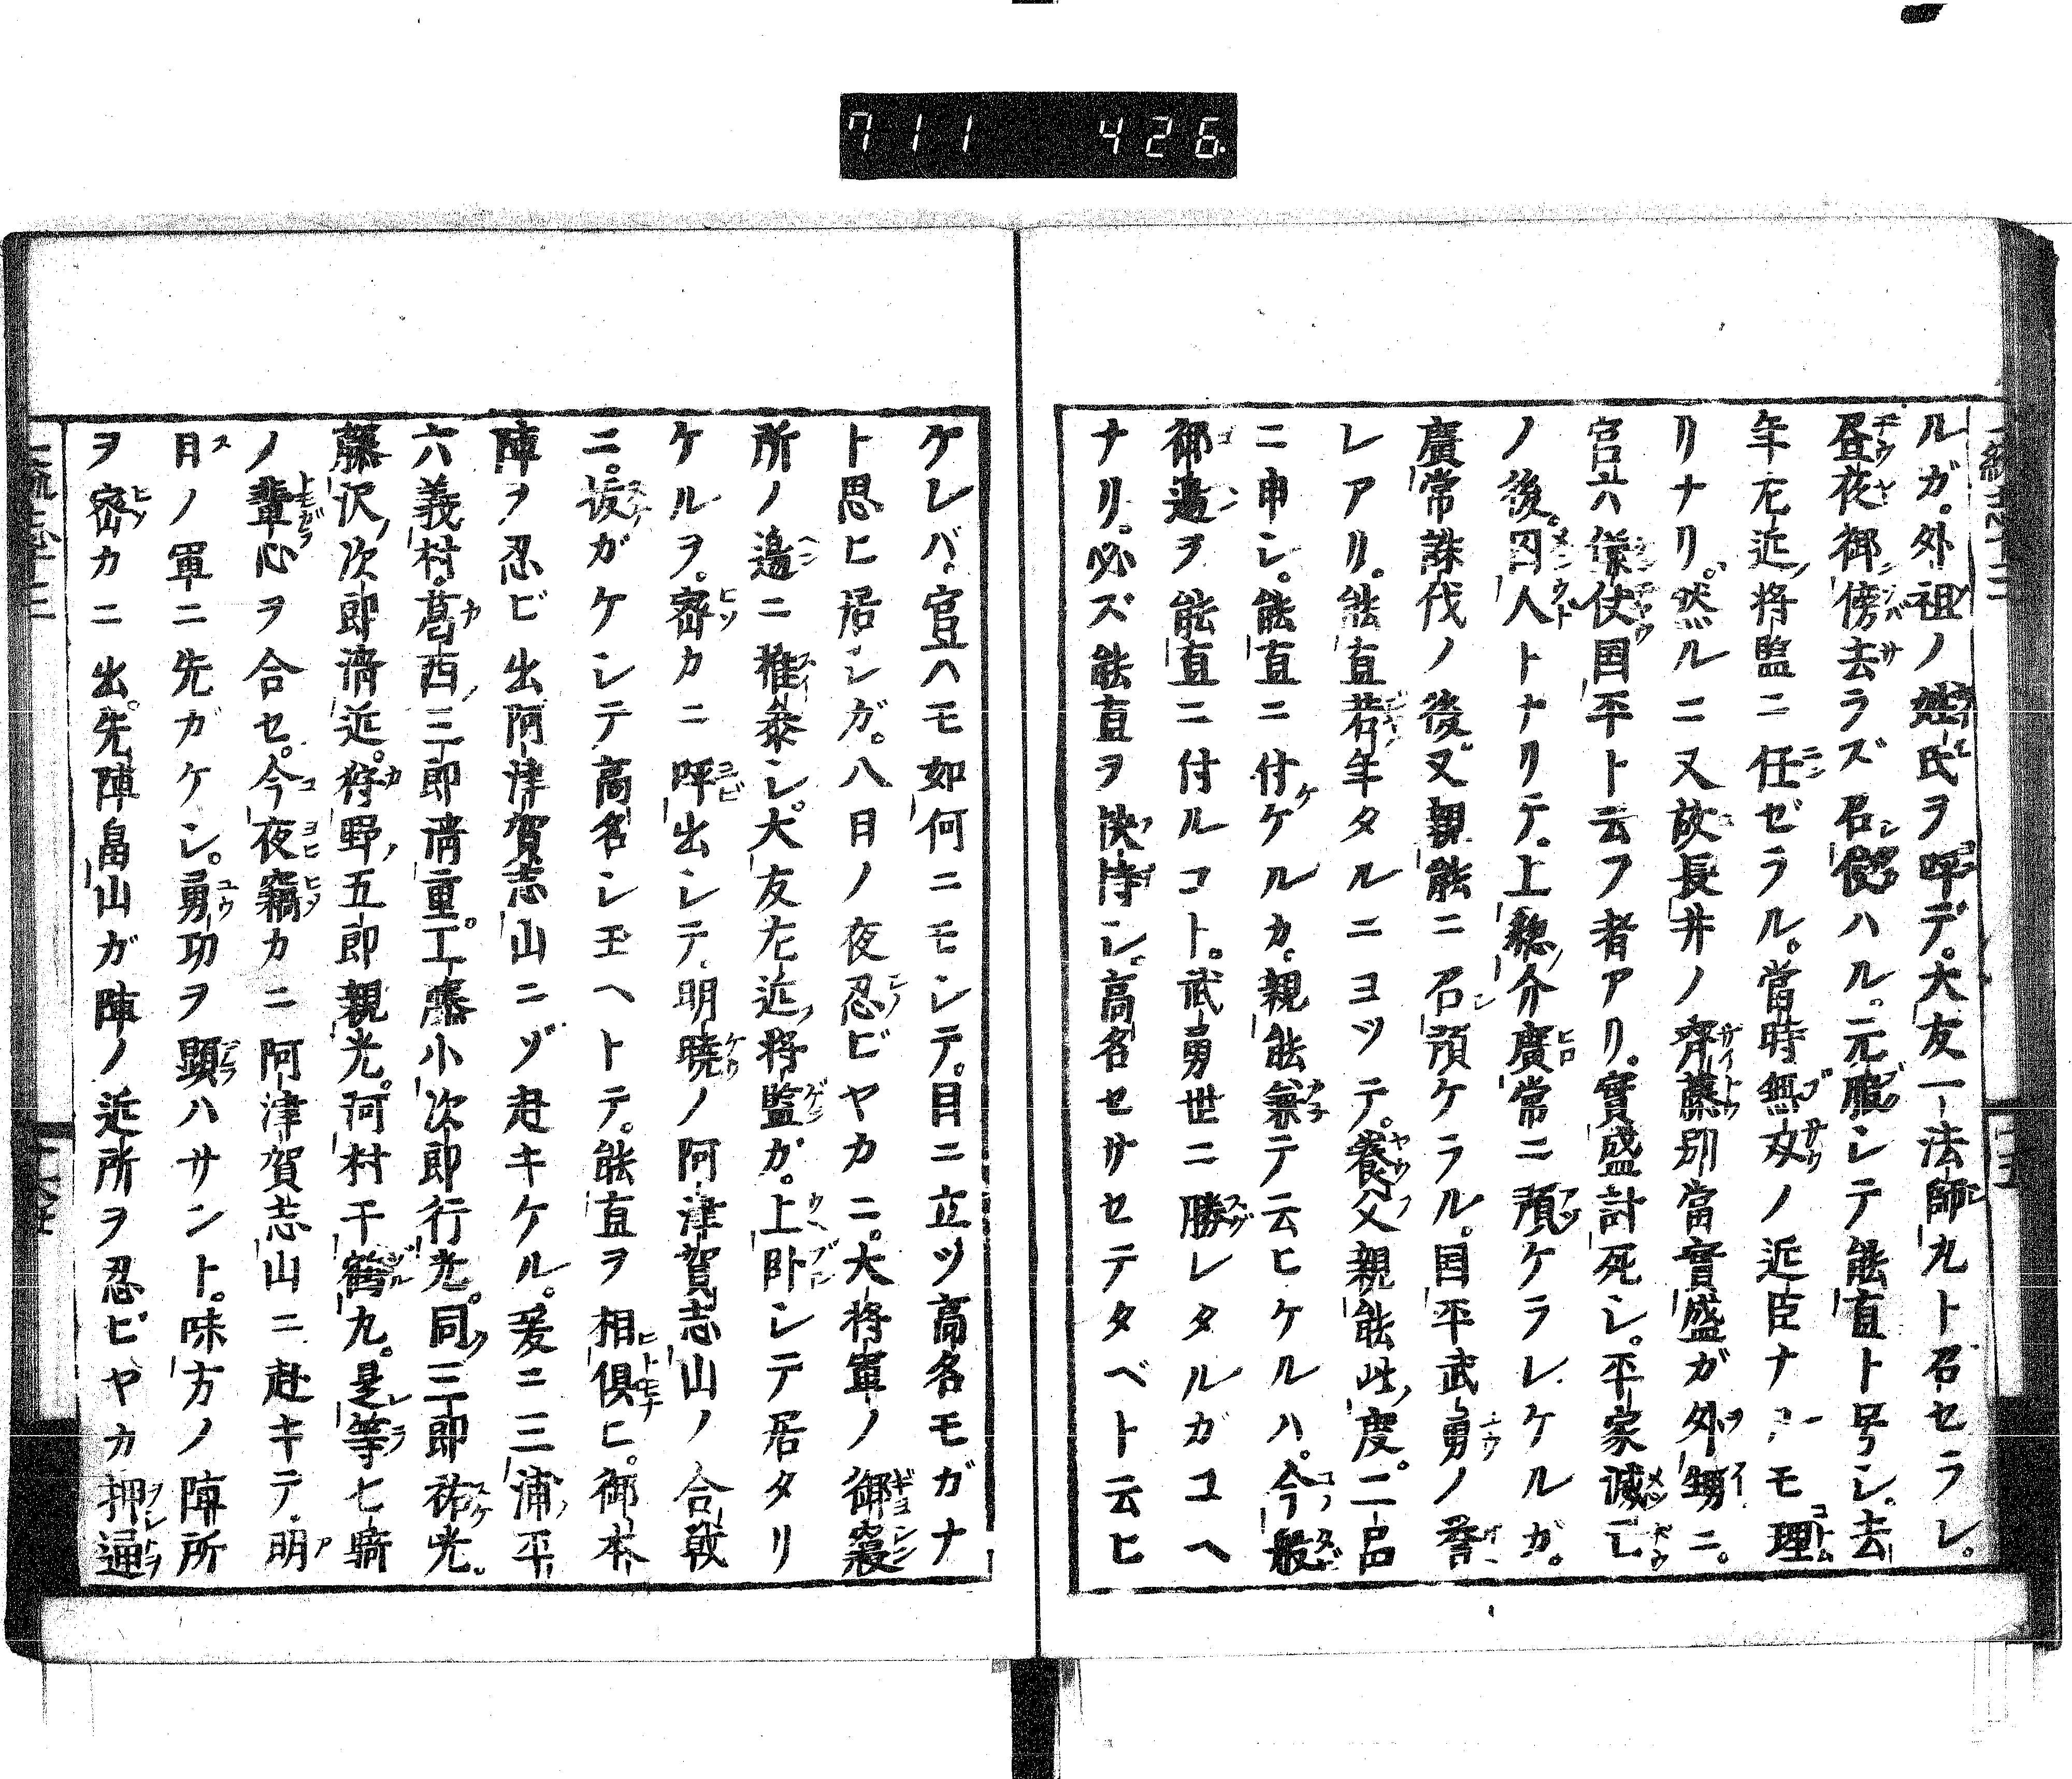 711 426
ルガ。外祖ノ姓氏ヲ呼デ。大友一法師丸ト召セラレ。
昼夜御傍去ラズ召使ハル。元服シテ能直ト号シ。去
年左近将監ニ任ゼラル。當時無双ノ近臣ナ　モ理
リナリ。然ルニ又故長井ノ齊藤別當實盛ガ外甥ニ。
宮六傔仗国平ト云フ者アリ。實盛討死シ。平家滅亡
ノ後。囚人トナリテ。上総ノ介廣常ニ預ケラレケルガ。
廣常誅伐ノ後。又親能ニ召預ケラル。国平武勇ノ誉
レアリ。能直若年タルニヨツテ。養父親能此ノ度。二品
ニ申シ。能直ニ付ケルカ。親能兼テ云ヒケルハ。今般
御邊ヲ能直ニ付ルコト。武勇世ニ勝レタルガユヘ
ナリ。必ズ能直ヲ扶持シ。高名セサセテタベト云ヒ
ケレバ。宮六モ如何ニモシテ。目ニ立ツ高名モガナ
ト思ヒ居シガ。八日ノ夜忍ビヤカニ。大将軍ノ御寝
所ノ邊ニ推参シ。大友左近ノ将監ガ。上臥シテ居タリ
ケルヲ。密カニ呼出シテ。明暁ノ阿津賀志山ノ合戦
ニ。抜ガケシテ高名シ玉ヘトテ。能直ヲ相倶ヒ。御本
陣ヲ忍ビ出阿津賀志山ニゾ赴キケル。爰ニ三浦ノ平
六義村。葛西ノ三郎清重。工藤小次郎行光。同ク三郎祐光。
藤沢ノ次郎清近。狩野ノ五郎親光。河村千鶴丸。是等七騎
ノ輩心ヲ合セ。今夜竊カニ阿津賀志山ニ赴キテ。明
日ノ軍ニ先ガケシ。勇功ヲ顕ハサント。味方ノ陣所
ヲ密カニ出。先陣畠山ガ陣ノ近所ヲ忍ビヤカ押通